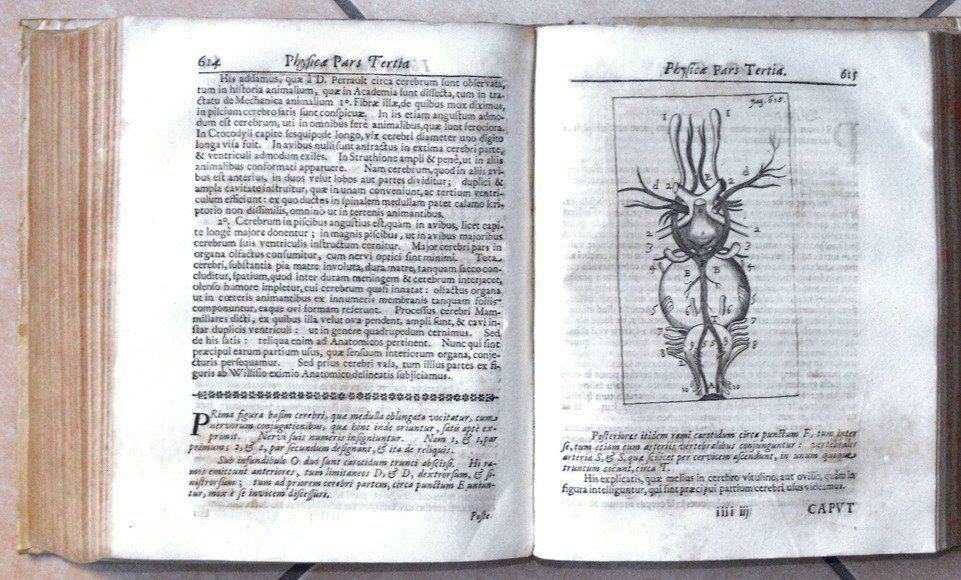 614 Physicæ Pars Tertia
His addamus, quæ à D. Perrault circa cerebrum sunt observata,
tum in historia animalium, quæ in Academia sunt dissecta, tum in tra-
ctatu de Mechanica animalium 1º. Fibræ illæ, de quibus mox diximus,
in piscium cerebro satis sunt conspicuæ. In iis etiam angustum admo-
dum est cerebrum, uti in omnibus fere animalibus, quæ sunt ferociora.
In Crocodyli capite sesquipede longo, vix cerebri diameter uno digito
longa visa fuit. In avibus nulli sunt anfractus in extima cerebri parte,
& ventriculi admodum exiles. In Struthione ampli & penè, ut in aliis
animalibus conformati apparuere. Nam cerebrum, quod in aliis avi-
bus est anterius, in duos velut lobos aut partes dividitur; duplici &
ampla cavitate instruitur, quæ in unam conveniunt, ac tertium ventri-
culum efficiunt: ex quo ductus in spinalem medullam patet calamo scri-
ptorio non dissimilis, omnino ut in terrenis animantibus.
2º. Cerebrum in piscibus angustius est, quam in avibus, licet capi-
te longè majore donentur; in magnis piscibus, ut in avibus majoribus
cerebrum suis ventriculis instructum cernitur. Major cerebri pars in
organa olfactus consumitur, cum nervi optici sint minimi. Tota
cerebri, substantia pia matre involuta, dura matre, tanquam sacco con-
cluditur, spatium, quod inter duram meningem & cerebrum interjacet,
oleoso humore impletur, cui cerebrum quasi innatat: olfactus organa
ut in cœteris animantibus ex innumeris membranis tanquam foliis
componuntur, eaque ovi formam referunt. Processus cerebri Mam-
millares dicti, ex quibus illa velut ova pendent, ampli sunt, & cavi in-
star duplicis ventriculi: ut in genere quadrupedum cernimus. Sed
de his satis: reliqua enim ad Anatomicos pertinent. Nunc qui sint
præcipui earum partium usus, quæ sensuum interiorum organa, conje-
cturis persequamur. Sed prius cerebri vasa, tum illius partes ex fi-
guris ab Willisio eximio Anatomico delineatis subjiciamus.
PRima figura basim cerebri, quæ medulla oblongata vocitatur, cum
nervorum conjugationibus, quæ hinc inde oriuntur, satis aptè ex-
primit. Nervi suis numeris insigniuntur. Nam 1, & 1, par
primum; 2, & 2, par secundum designant, & ita de reliquis.
Sub infundibulo O duo sunt carotidum trunci abscissi. Hi ra-
mos emittunt anteriores, tum limitaneos D, & D, dextrorsum, & si-
nistrorsum; tum ad priorem cerebri partem, circa punctum E untun-
tur, mox è se invicem discessuri.
Poste-
Physicæ Pars Tertia. 615
pag. 615.
1 1
E
d 2 2 d
2 2
3 3
4 4
B B
5 5
6 6
7 7
8 8
10 A 10
Posteriores itidem rami carotidum circa punctum F, tum inter
se, tum etiam cum arteriis vertebralibus conjunguntur: vertebrales
arteriæ S, & S, quæ scilicet per cervicem ascendunt, in unum quoque
truncum coëunt, circa T.
His explicatis, quæ melius in cerebro vitulino, aut ovillo, quàm in
figura intelliguntur, qui sint præcipui partium cerebri usus videamus.
iiii iij CAPVT